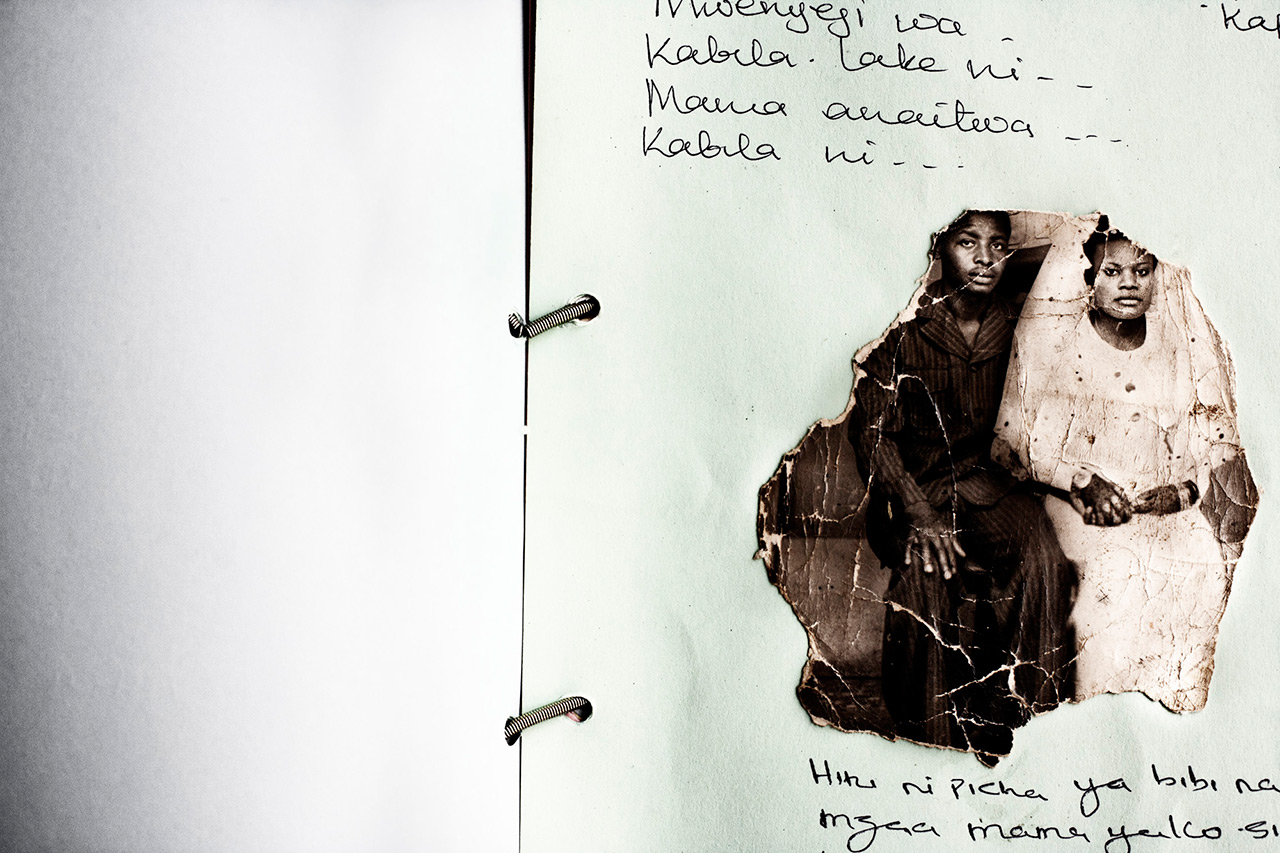 Mwenyegi wa - Kap
Kabila. Lake ni - -
Mama anaitwa ---
Kabila ni ---.
Hii ni picha ya bibi na
mzaa mama yako. si